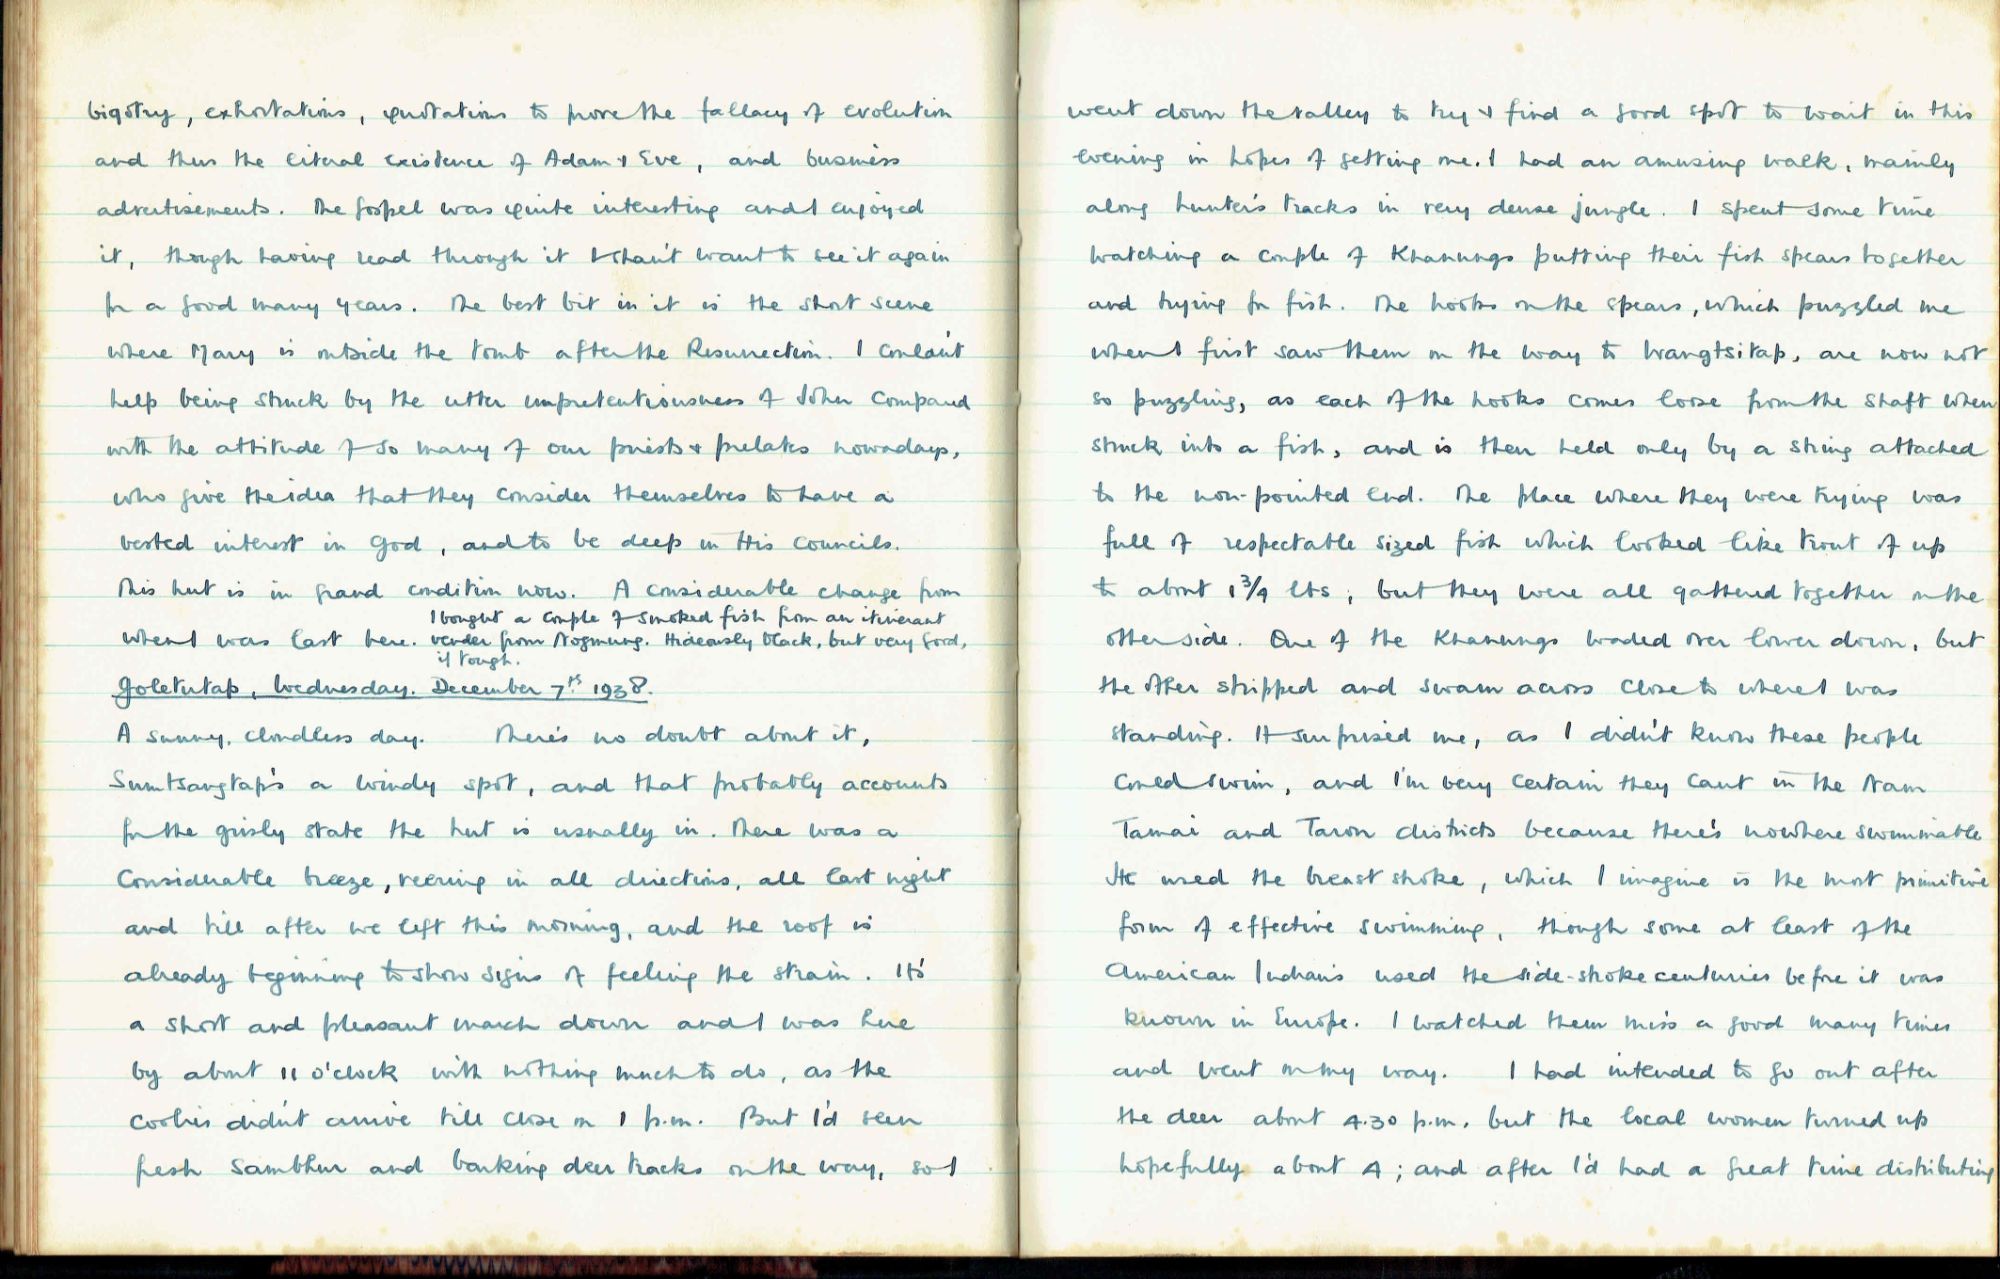 bigotry, exhortations, quotations to prove the fallacy of evolution
and thus the literal existence of Adam & Eve, and business
advertisements. The Gospel was quite interesting and I enjoyed
it, though having read through it I shan't want to see it again
for a good many years. The best bit in it is the short scene
where Mary is outside the tomb after the Resurrection. I couldn't
help being struck by the utter unpretentiousness of John compared
with the attitude of so many of our priests & prelates nowadays,
who give the idea that they consider themselves to have a
vested interest in God, and to be deep in His Councils.
This hut is in grand condition now. A considerable change from
when I was last here. I bought a couple of smoked fish from an itinerant
vender from Nogmung. Hideously black, but very good,
if tough.
Goletutap, Wednesday. December 7th 1938.
A sunny, cloudless day. There's no doubt about it,
Sumtsangtap's a windy spot, and that probably accounts
for the grisly state the hut is usually in. There was a
considerable breeze, veering in all directions, all last night
and till after we left this morning, and the roof is
already beginning to show signs of feeling the strain. It's
a short and pleasant march down and I was here
by about 11 o'clock with nothing much to do, as the
coolies didn't arrive till close on 1 p.m. But I'd seen
fresh Sambhur and barking deer tracks on the way, so I
went down the valley to try & find a good spot to wait in this
evening in hopes of getting one. I had an amusing walk, mainly
along hunter's tracks in very dense jungle. I spent some time
watching a couple of Khanungs putting their fish spears together
and trying for fish. The hooks on the spears, which puzzled me
when I first saw them on the way to Wangtsitap, are now not
so puzzling, as each of the hooks comes loose from the shaft when
struck into a fish, and is then held only by a string attached
to the non-pointed end. The place where they were trying was
full of respectable sized fish which looked like trout of up
to about 1 3/4 lbs; but they were all gathered together on the
other side. One of the Khanungs waded over lower down, but
the other stripped and swam across close to where I was
standing. It surprised me, as I didn't know these people
could swim, and I'm very certain they can't in the Nam
Tamai and Taron districts because there's nowhere swimmable
He used the breast stroke, which I imagine is the most primitive
form of effective swimming, though some at least of the
American Indians used the side-stroke centuries before it was
known in Europe. I watched them miss a good many times
and went on my way. I had intended to go out after
the deer about 4.30 p.m. but the local women turned up
hopefully about 4; and after I'd had a great time distributing